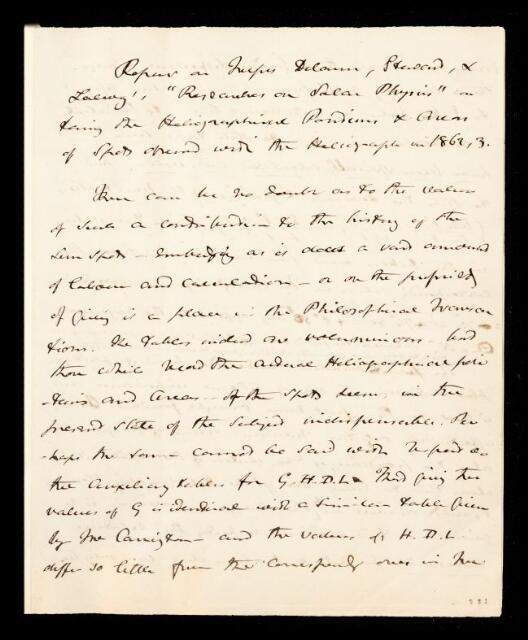 Report on Messrs De la Rue, Stewart, &
Loewy's, "Researches on Solar Physics" con
taing the Heliographical Positions & Areas
of Spots observed with the Heliograph in 1862, 3.
There can be no doubt as to the value
of such a contribution to the history of the
Sun spots - Embodying as it does a vast amount
of labour and calculation - or on the propriety
of giving it a place in the Philosophical Transac
tions. The Tables indeed are voluminous - but
those which record the actual Heliographical posi
-tions and areas of the Spots seem in the
present state of the subject indispensable. Per
-haps the same cannot be said with respect to
the Auxiliary tables for G. H. D. L. That giving the
values of G is identical with a similar table given
by Mr Carrington - and the values of H. D. L.
differ so little from the corresponding ones in Mr